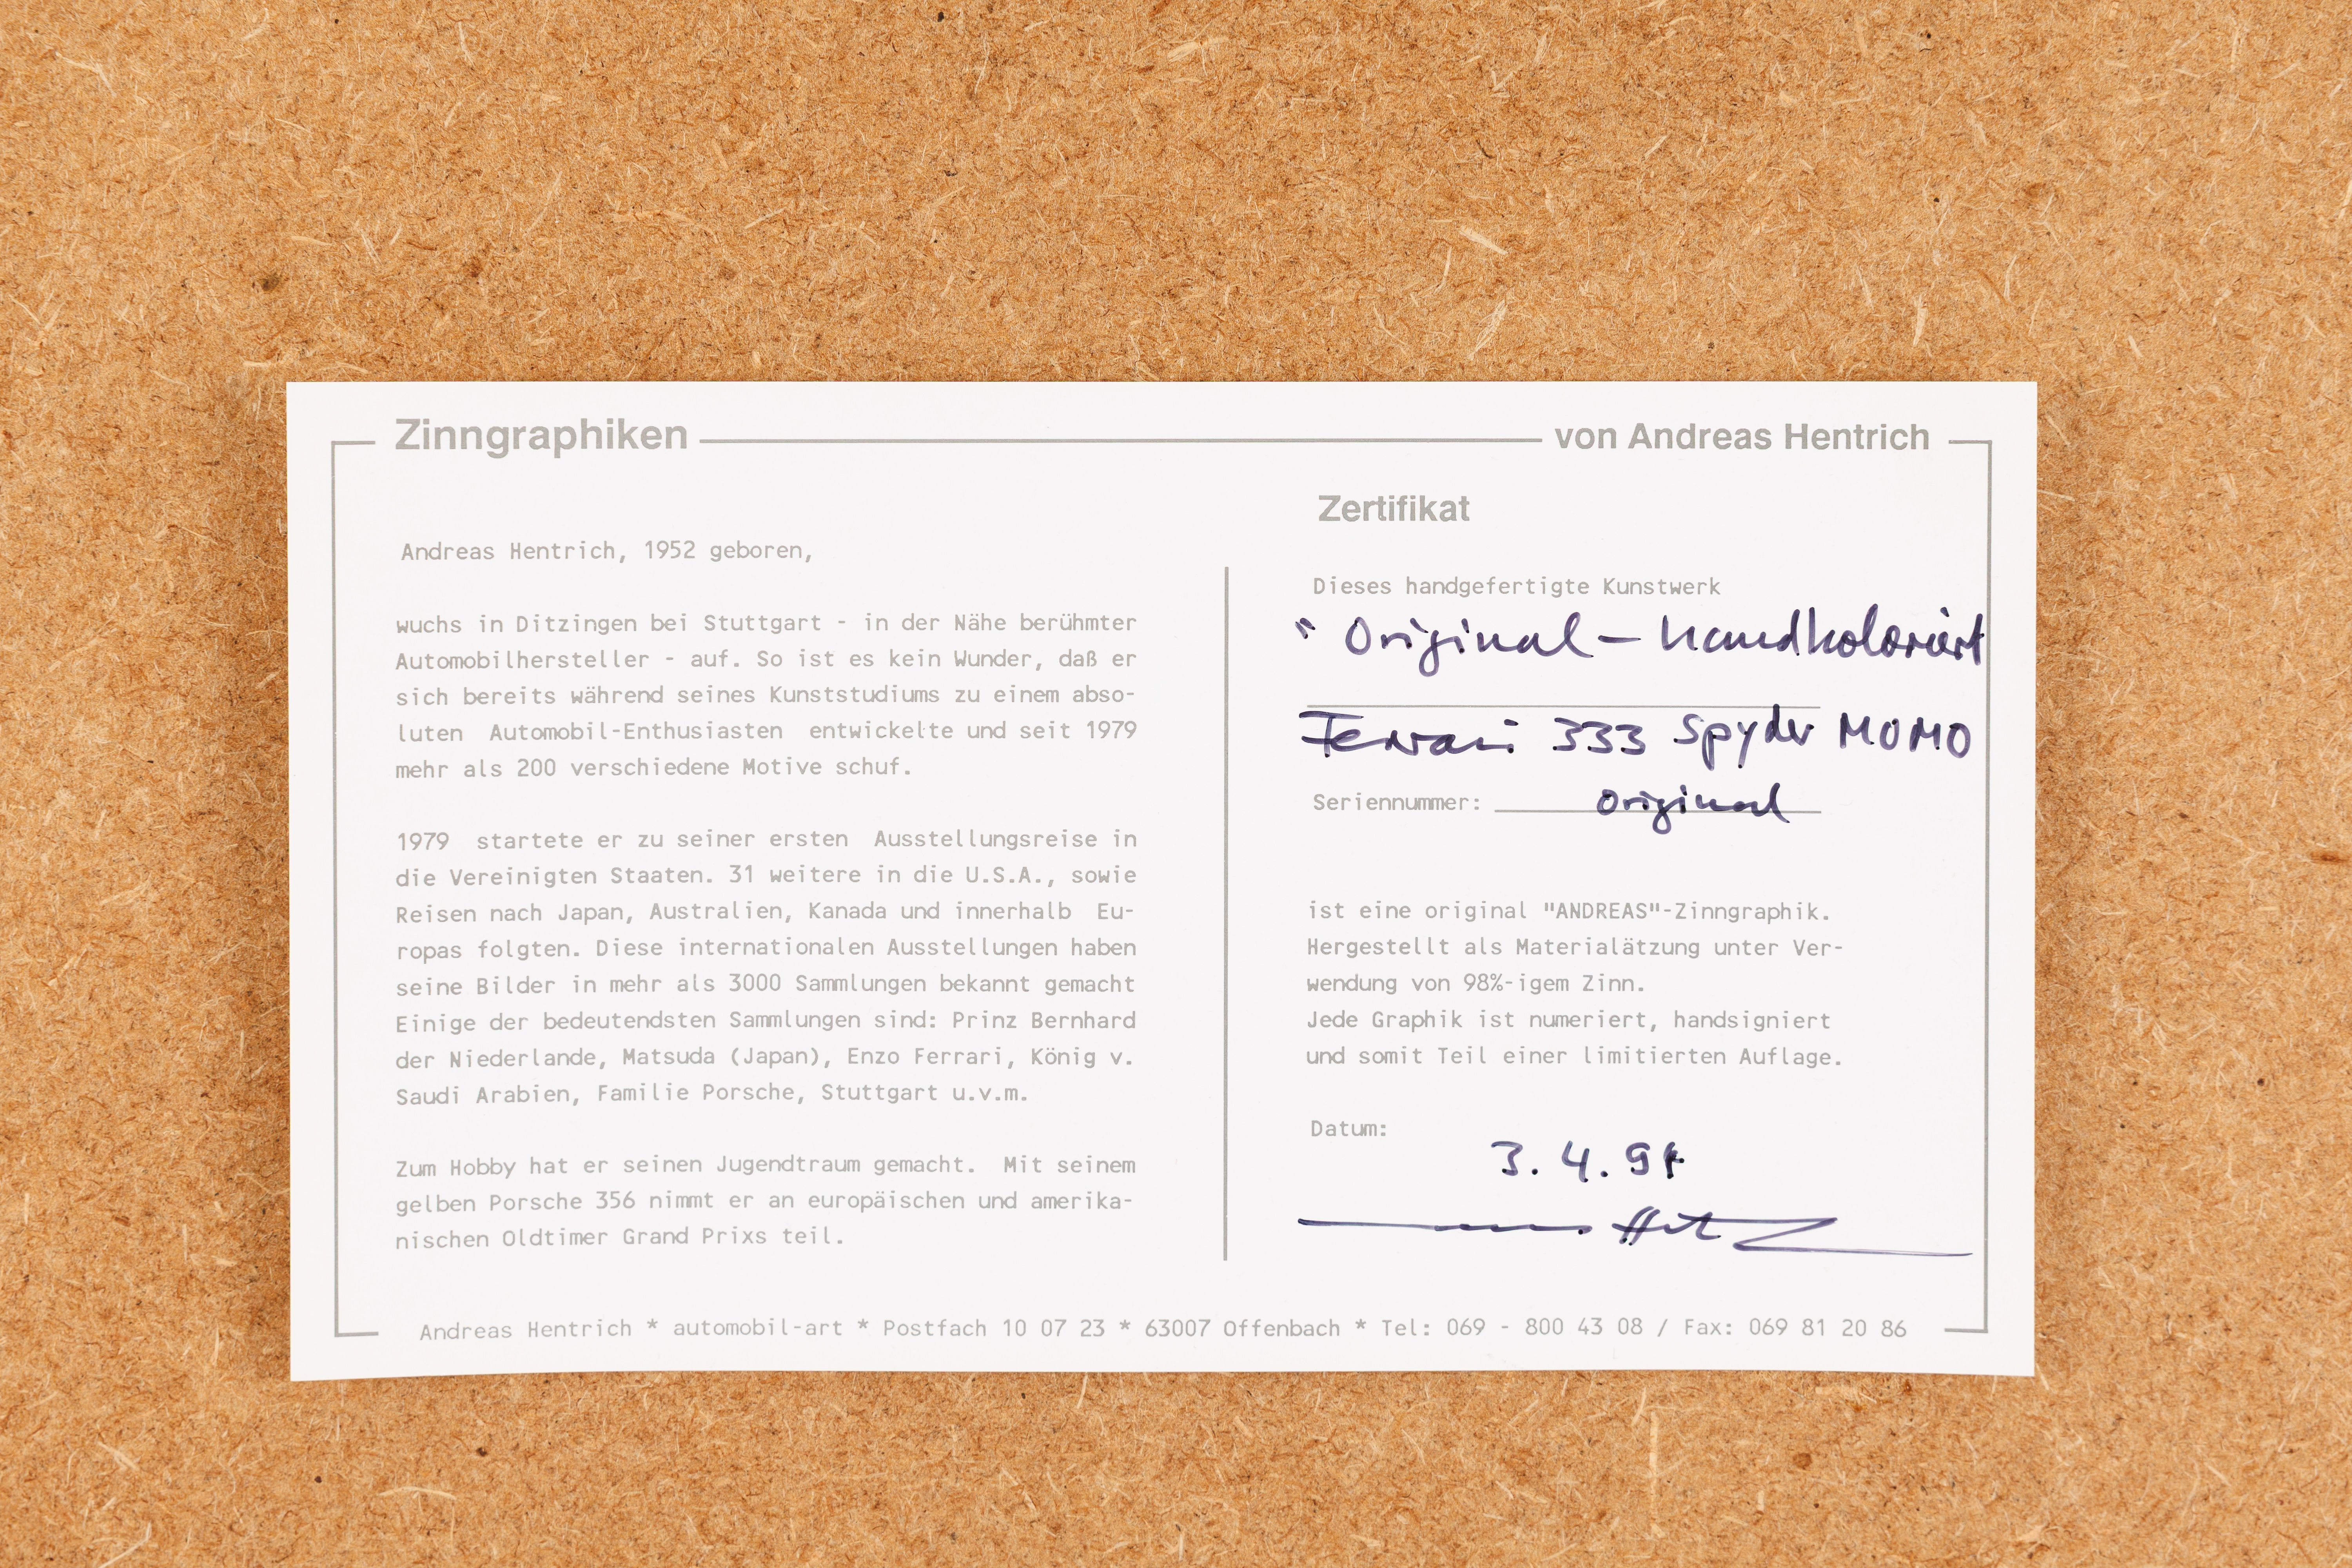 Zinngraphiken von Andreas Hentrich
Andreas Hentrich, 1952 geboren,
wuchs in Ditzingen bei Stuttgart - in der Nähe berühmter
Automobilhersteller - auf. So ist es kein Wunder, daß er
sich bereits während seines Kunststudiums zu einem abso-
luten Automobil-Enthusiasten entwickelte und seit 1979
mehr als 200 verschiedene Motive schuf.
1979 startete er zu seiner ersten Ausstellungsreise in
die Vereinigten Staaten. 31 weitere in die U.S.A., sowie
Reisen nach Japan, Australien, Kanada und innerhalb Eu-
ropas folgten. Diese internationalen Ausstellungen haben
seine Bilder in mehr als 3000 Sammlungen bekannt gemacht
Einige der bedeutendsten Sammlungen sind: Prinz Bernhard
der Niederlande, Matsuda (Japan), Enzo Ferrari, König v.
Saudi Arabien, Familie Porsche, Stuttgart u.v.m.
Zum Hobby hat er seinen Jugendtraum gemacht. Mit seinem
gelben Porsche 356 nimmt er an europäischen und amerika-
nischen Oldtimer Grand Prixs teil.
Zertifikat
Dieses handgefertigte Kunstwerk
" Original - handkoloriert
Ferrari 333 Spyder MOMO
Seriennummer: original
ist eine original "ANDREAS"-Zinngraphik.
Hergestellt als Materialätzung unter Ver-
wendung von 98%-igem Zinn.
Jede Graphik ist numeriert, handsigniert
und somit Teil einer limitierten Auflage.
Datum:
3. 4.
Andreas Hentrich * automobil-art * Postfach 10 07 23 * 63007 Offenbach * Tel: 069 - 800 43 08 / Fax: 069 81 20 86